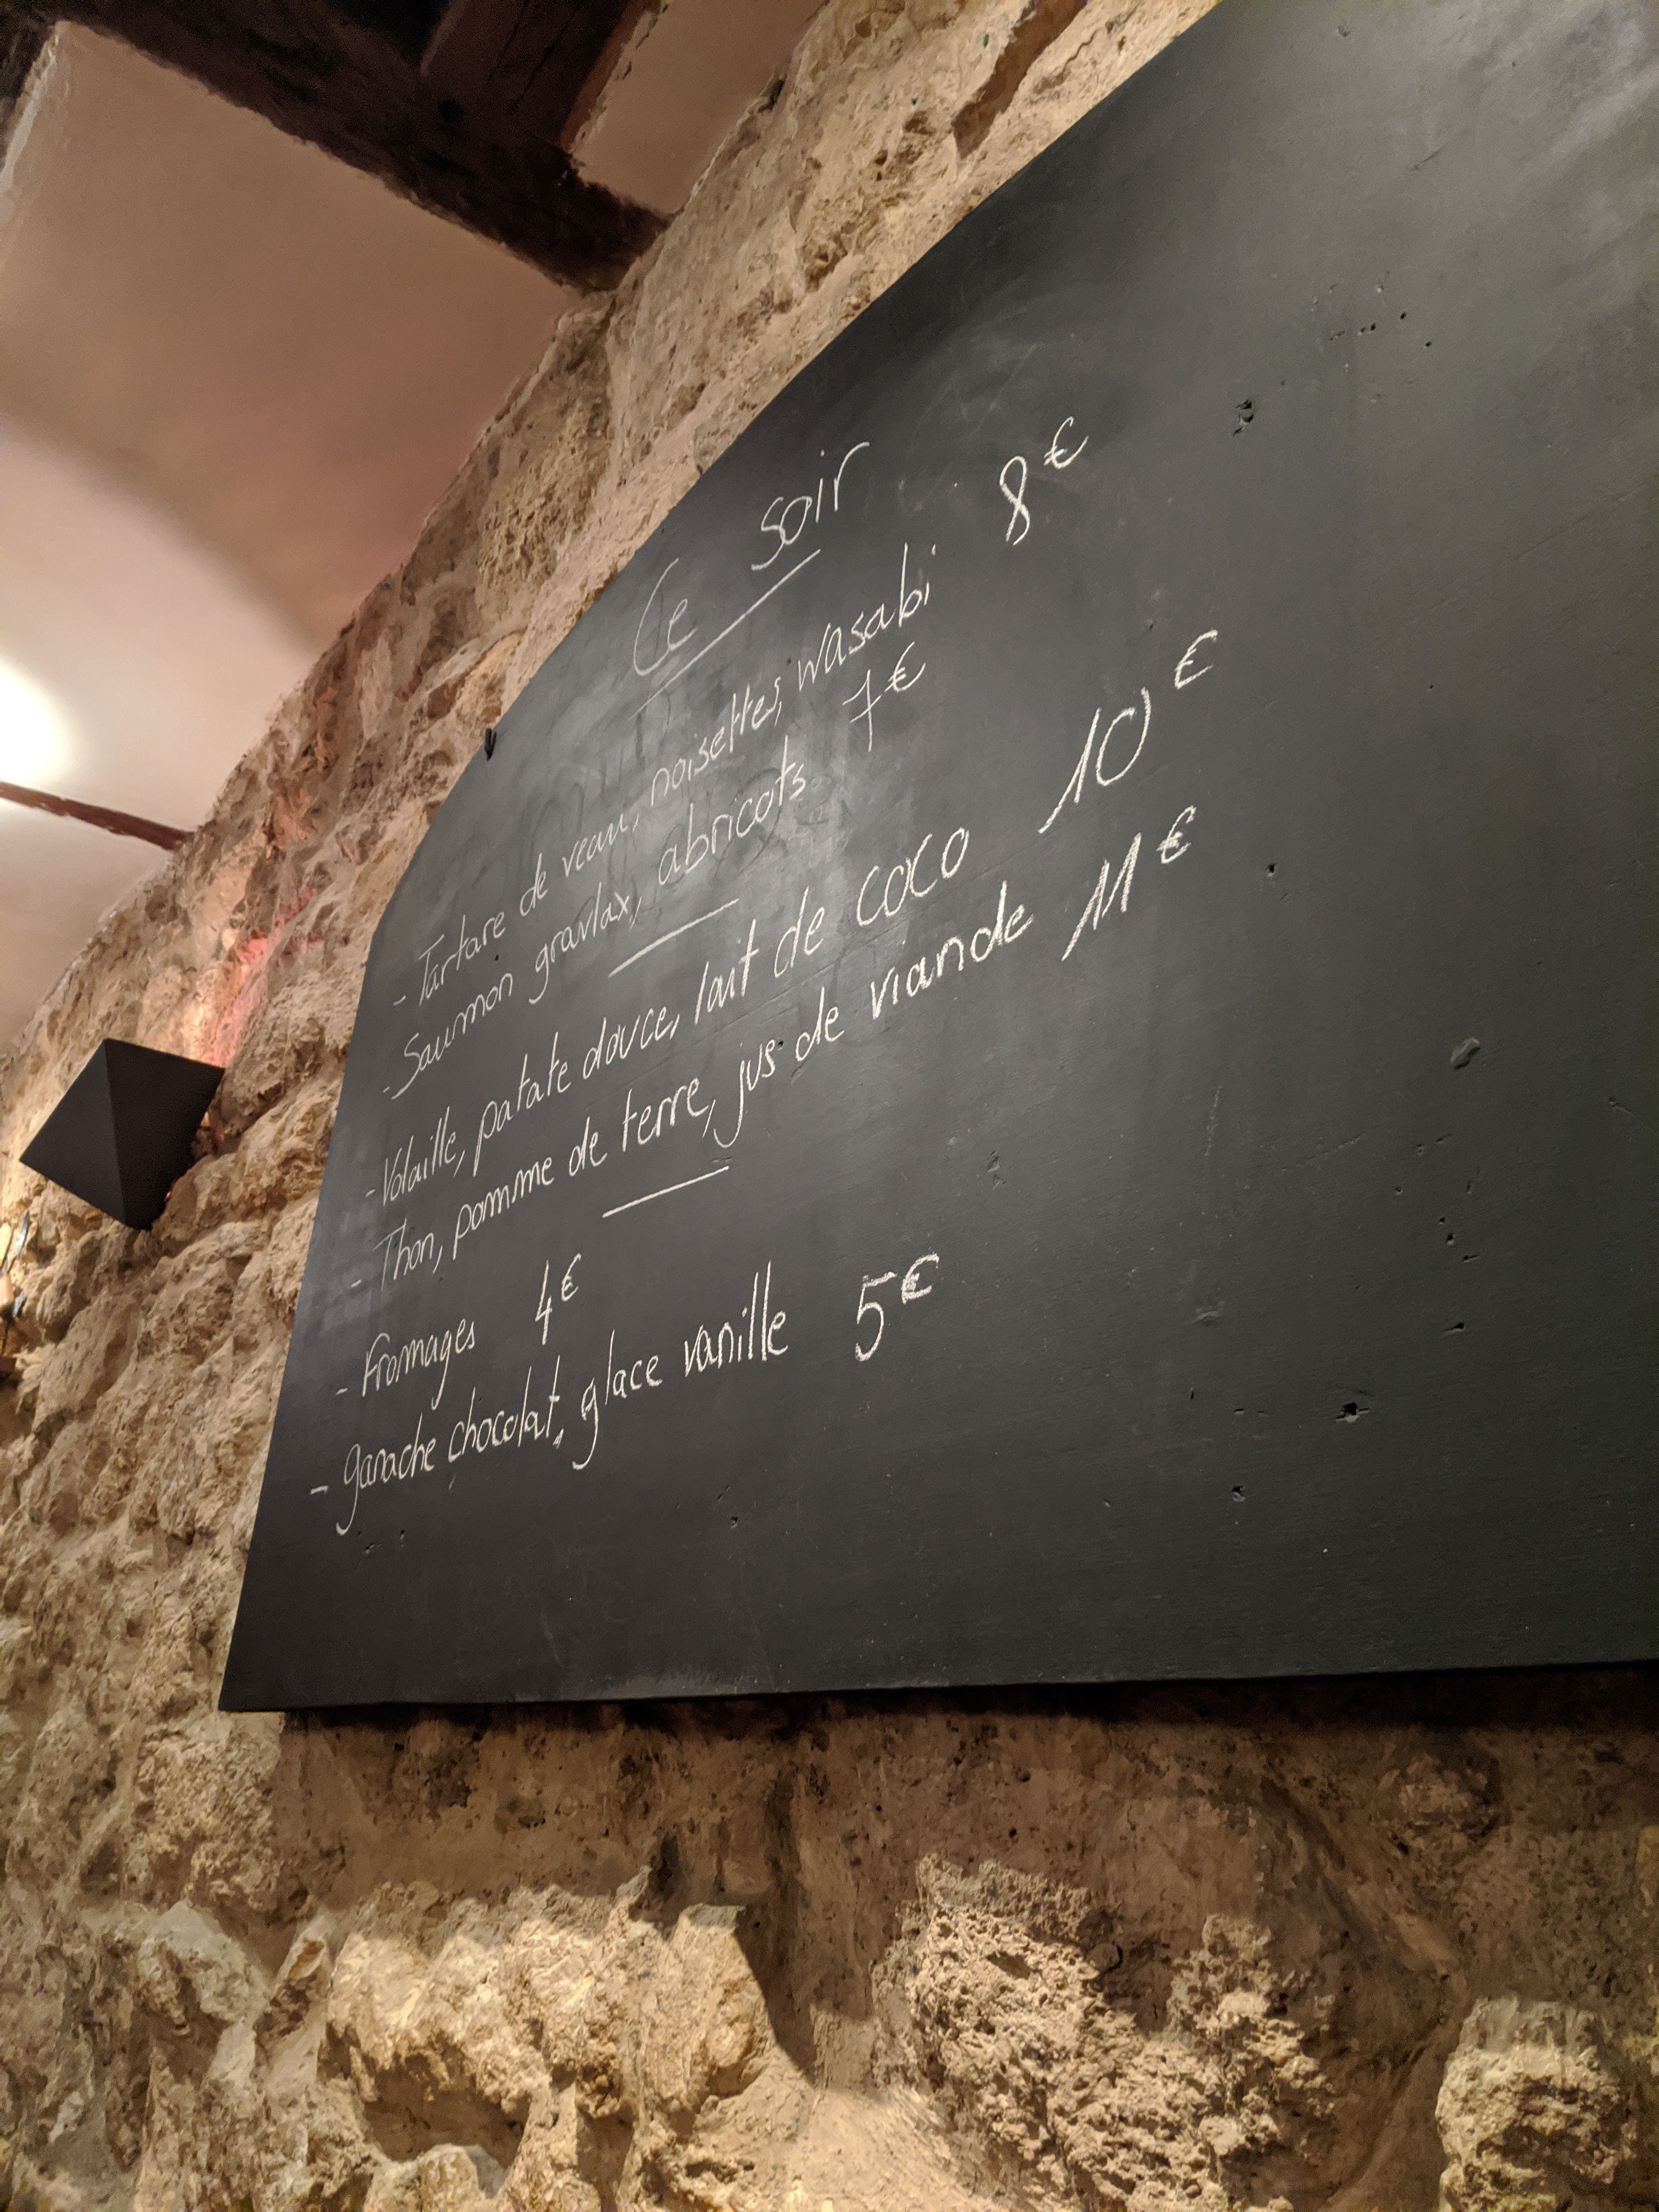 Ce soir
- Tartare de veau, noisettes, wasabi 8€
- Saumon gravlax, abricots 7€
- Volaille, patate douce, lait de coco 10€
- Thon, pomme de terre, jus de viande 11€
- Fromages 4€
- ganache chocolat, glace vanille 5€